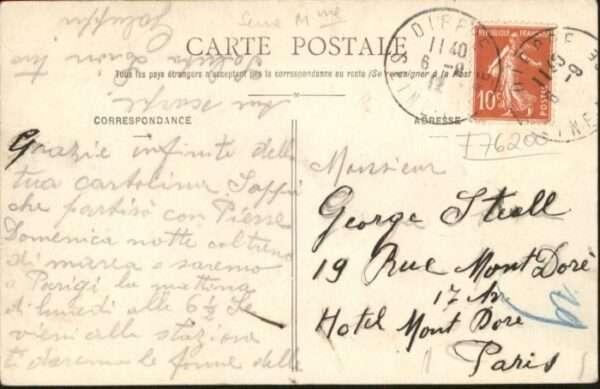 CARTE POSTALE
Tous les pays étrangers n'acceptent pas la correspondance au recto (Se renseigner à la Poste)
CORRESPONDANCE
ADRESSE
RÉPUBLIQUE FRANÇAISE
10c
POSTES
DIEPPE
1140
6-9
12
DIEPPE
776200
Grazie infinite della
tua cartolina Sappi
che partirò con Pierre
Domenica notte col treno
di marea e saremo
a Parigi la mattina
di lunedì alle 6½ Se
vieni alla stazione
ti daremo le forme delle
Monsieur
George Stull
19 Rue Mont Doré
17 Ar
Hotel Mont Dore
Paris